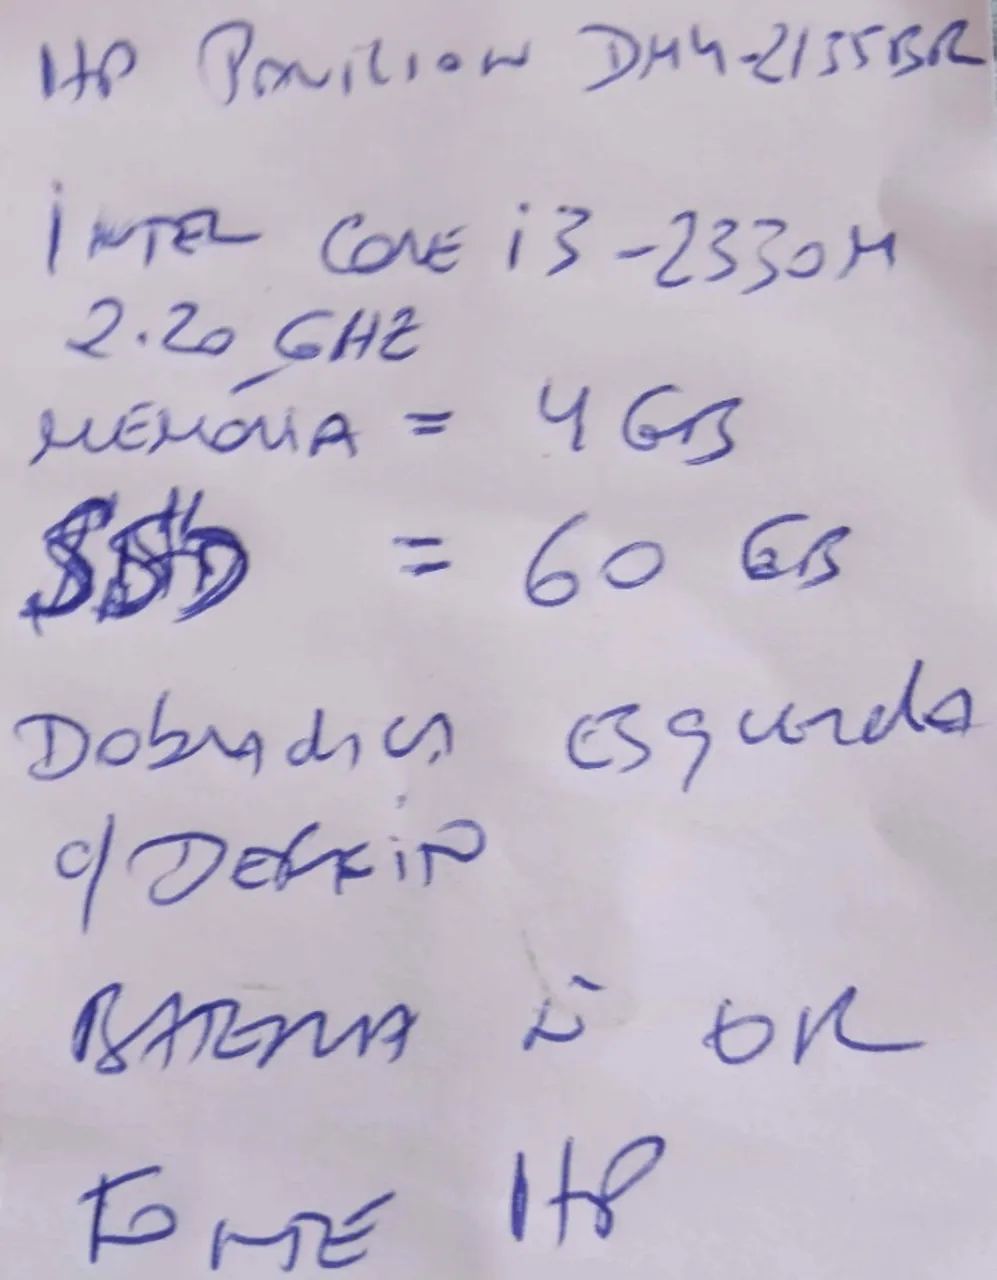 HP Pavilion DM4-2155BR
INTEL CORE i3-2330M
2.20 GHZ
MEMÓRIA = 4 GB
SSD = 60 GB
Dobradiça esquerda
c/ DEFEITO
BATERIA ñ OK
FONTE HP